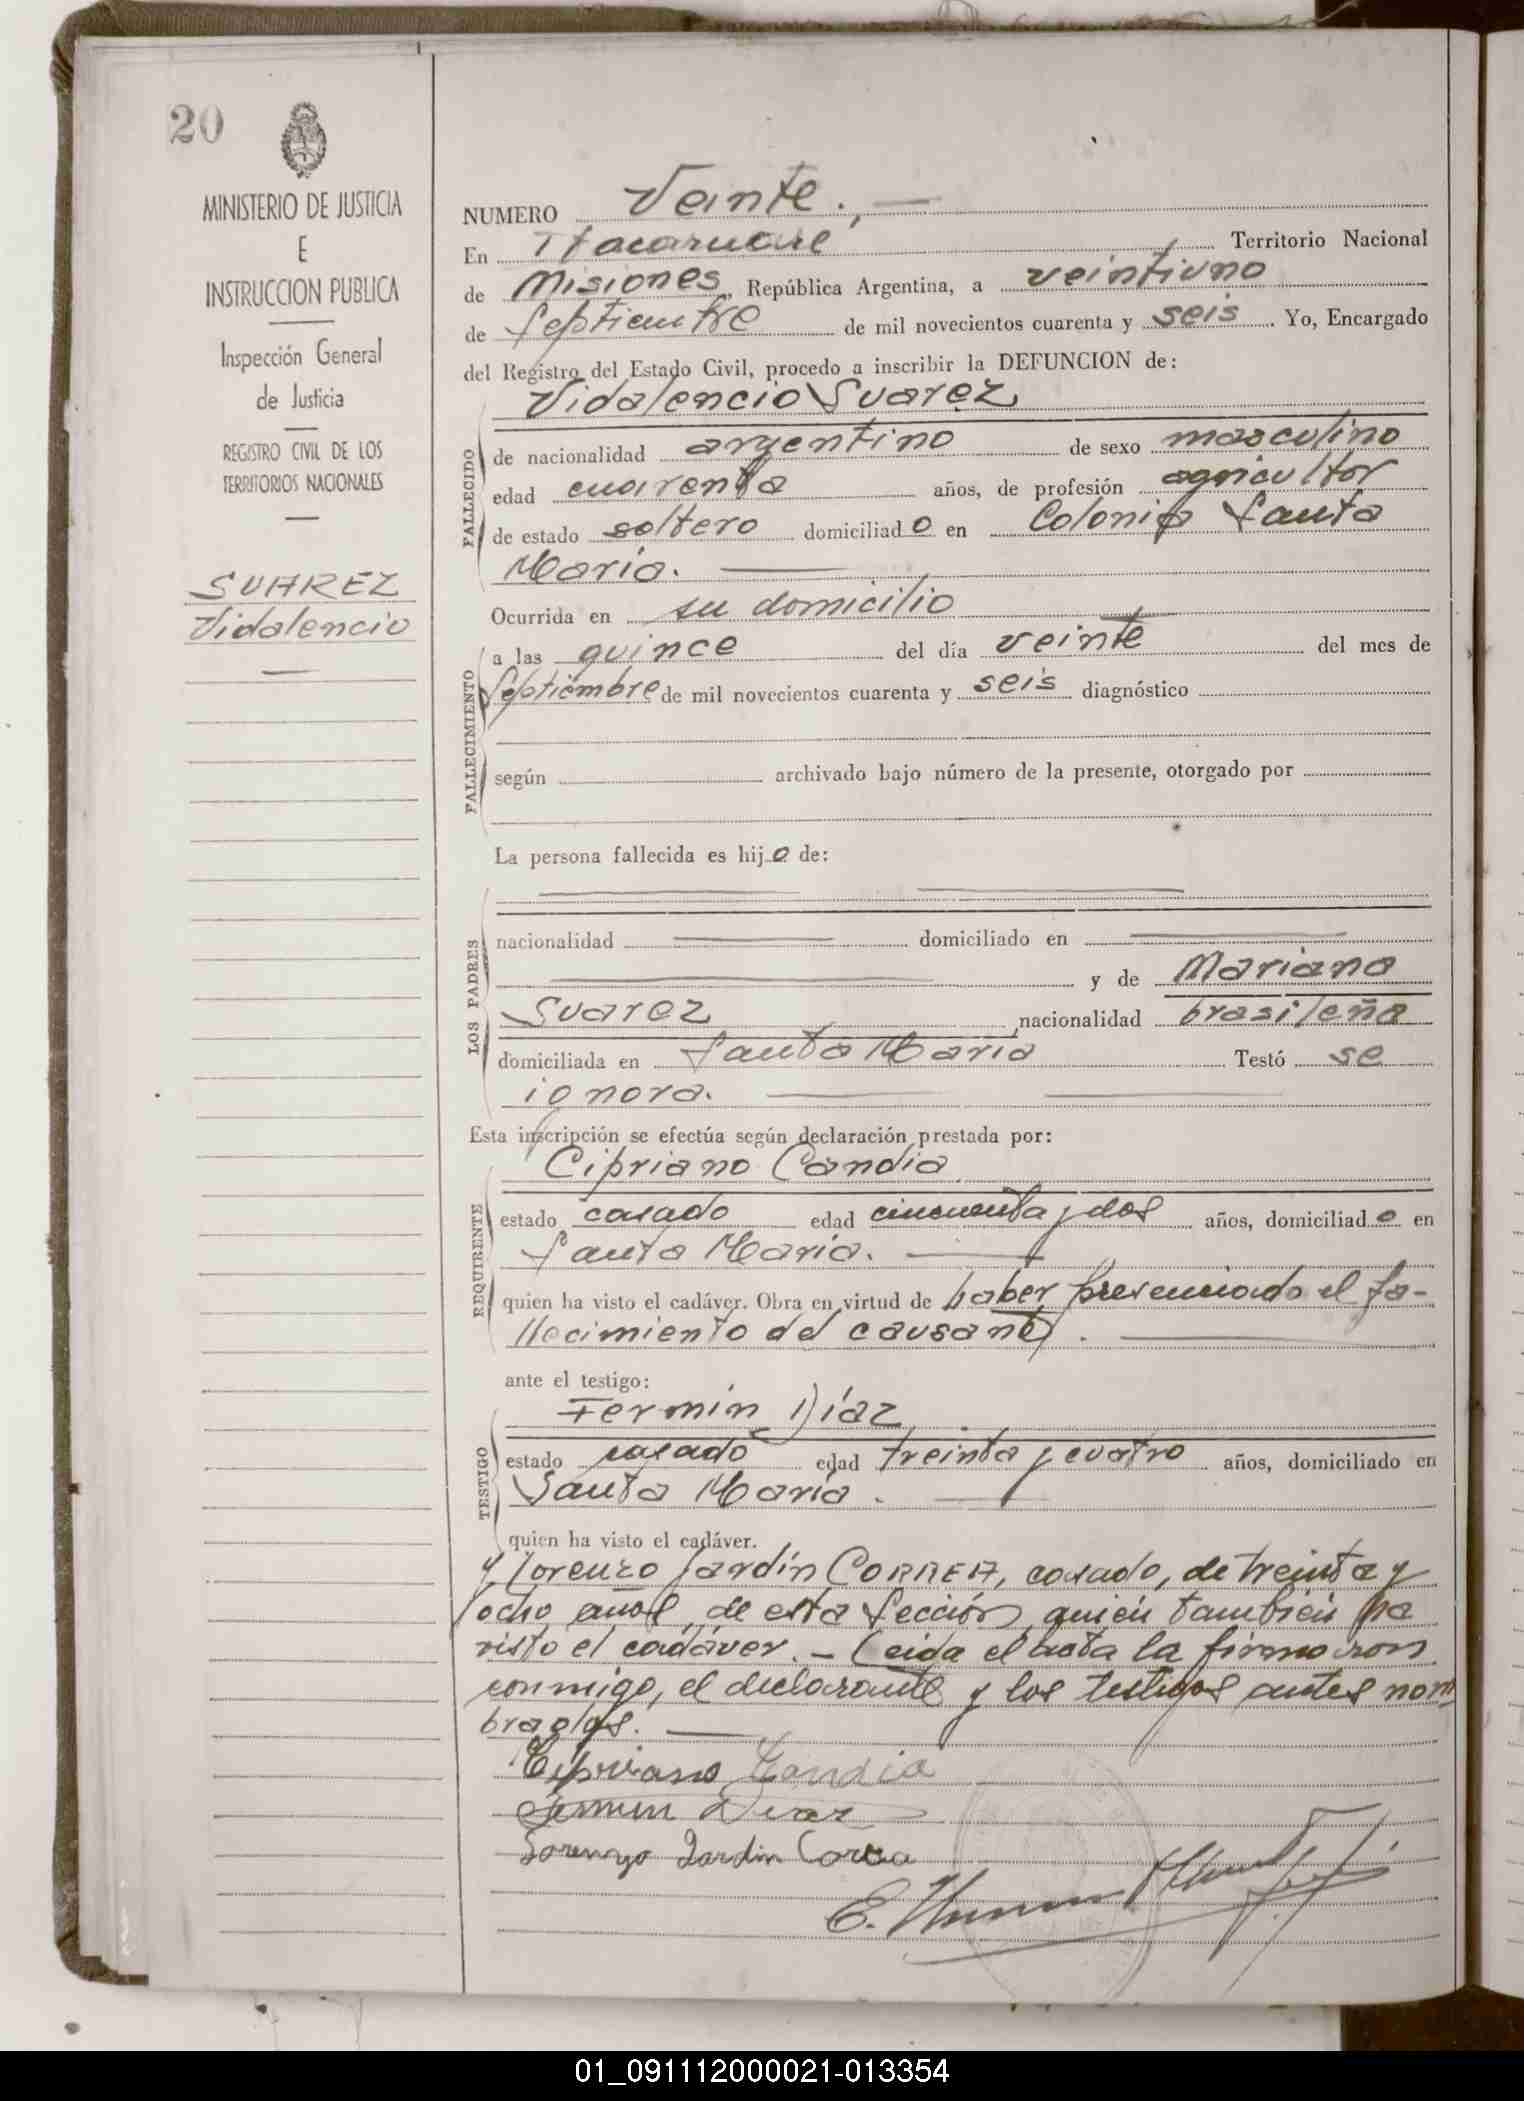 20
MINISTERIO DE JUSTICIA
E
INSTRUCCION PUBLICA
Inspección General
de Justicia
REGISTRO CIVIL DE LOS
TERRITORIOS NACIONALES
SUAREZ
Vidalencio
NUMERO Veinte.
En Itacaruaré Territorio Nacional
de Misiones, República Argentina, a veintiuno
de Septiembre de mil novecientos cuarenta y seis. Yo, Encargado
del Registro del Estado Civil, procedo a inscribir la DEFUNCION de:
Vidalencio Suarez
FALLECIDO
de nacionalidad argentino de sexo masculino
edad cuarenta años, de profesión agricultor
de estado soltero domiciliado en Colonia Santa
María.
Ocurrida en su domicilio
FALLECIMIENTO
a las quince del día veinte del mes de
Septiembre de mil novecientos cuarenta y seis diagnóstico
según archivado bajo número de la presente, otorgado por
La persona fallecida es hijo de:
LOS PADRES
nacionalidad domiciliado en
y de Mariana
Suarez nacionalidad brasileña
domiciliada en Santa María Testó se
ignora.
Esta inscripción se efectúa según declaración prestada por:
Cipriano Candia
REQUIRENTE
estado casado edad cincuenta y dos años, domiciliado en
Santa María.
quien ha visto el cadáver. Obra en virtud de haber presenciado el fa-
llecimiento del causante.
ante el testigo:
Fermín Díaz
TESTIGO
estado casado edad treinta y cuatro años, domiciliado en
Santa María.
quien ha visto el cadáver.
y Lorenzo Jardín CORREA, casado, de treinta y
ocho años, de esta Sección, quien también ha
visto el cadáver. - Leida el acta la firmaron
conmigo, el declarante y los testigos antes nom
brados.
Cipriano Candia
Fermin Diaz
Lorenzo Jardin Correa
E.
01_091112000021-013354